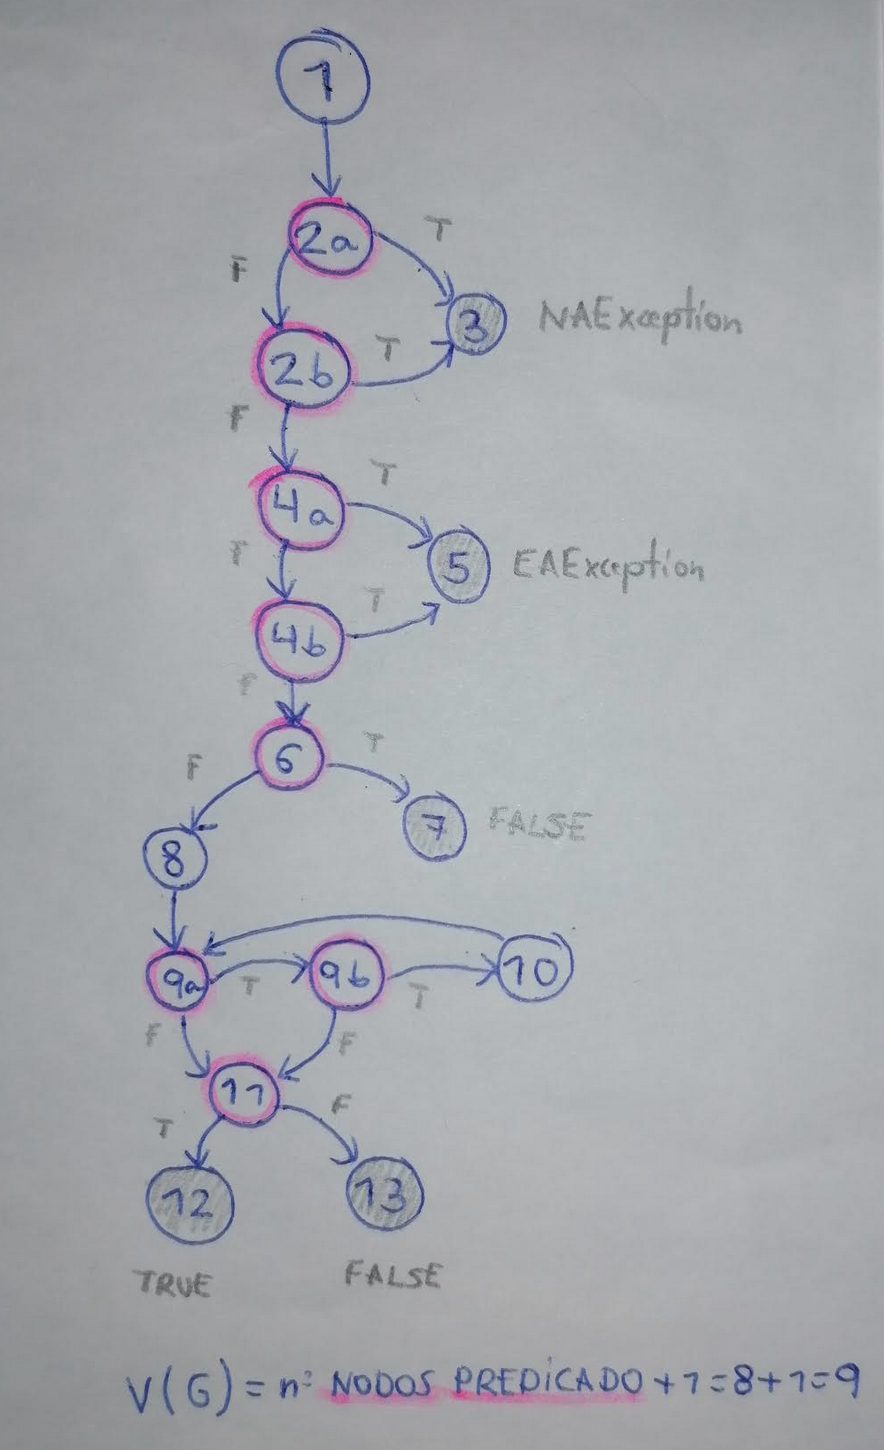 1
2a
T
F
3 NAException
2b
T
F
4a
T
F
5 EAException
4b
T
F
6
T
F
7 FALSE
8
9a
T
9b
T
10
F
F
11
T
F
12
13
TRUE
FALSE
V(G) = nº NODOS PREDICADO + 1 = 8 + 1 = 9